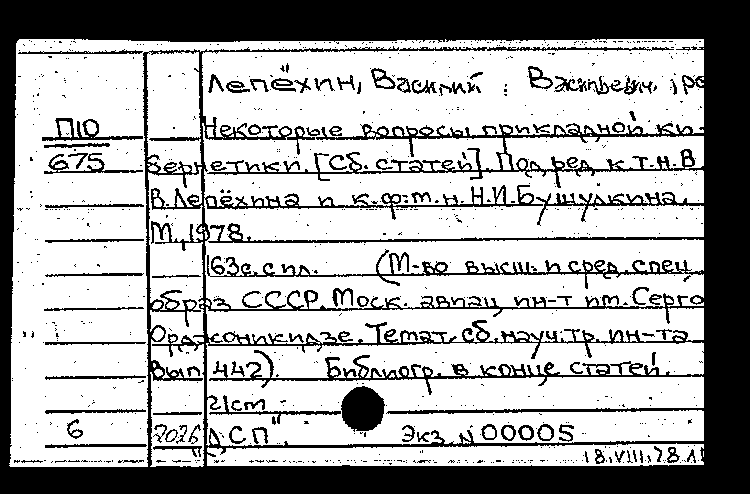 Лепёхин, Василий Васильевич, ре
П10 Некоторые вопросы прикладной ки-
675 бернетики. [Сб. статей]. Под ред. к.т.н. В.
В. Лепёхина и к.ф.-м.н. Н.И. Бушулкина.
М., 1978.
163 с. с ил. (М-во высш. и сред. спец.
образ СССР. Моск. авиац. ин-т им. Серго
Орджоникидзе. Темат. сб. науч. тр. ин-та
Вып. 442). Библиогр. в конце статей.
21 cm
6 2026 "ДСП". Экз. N 00005
18.VIII.78